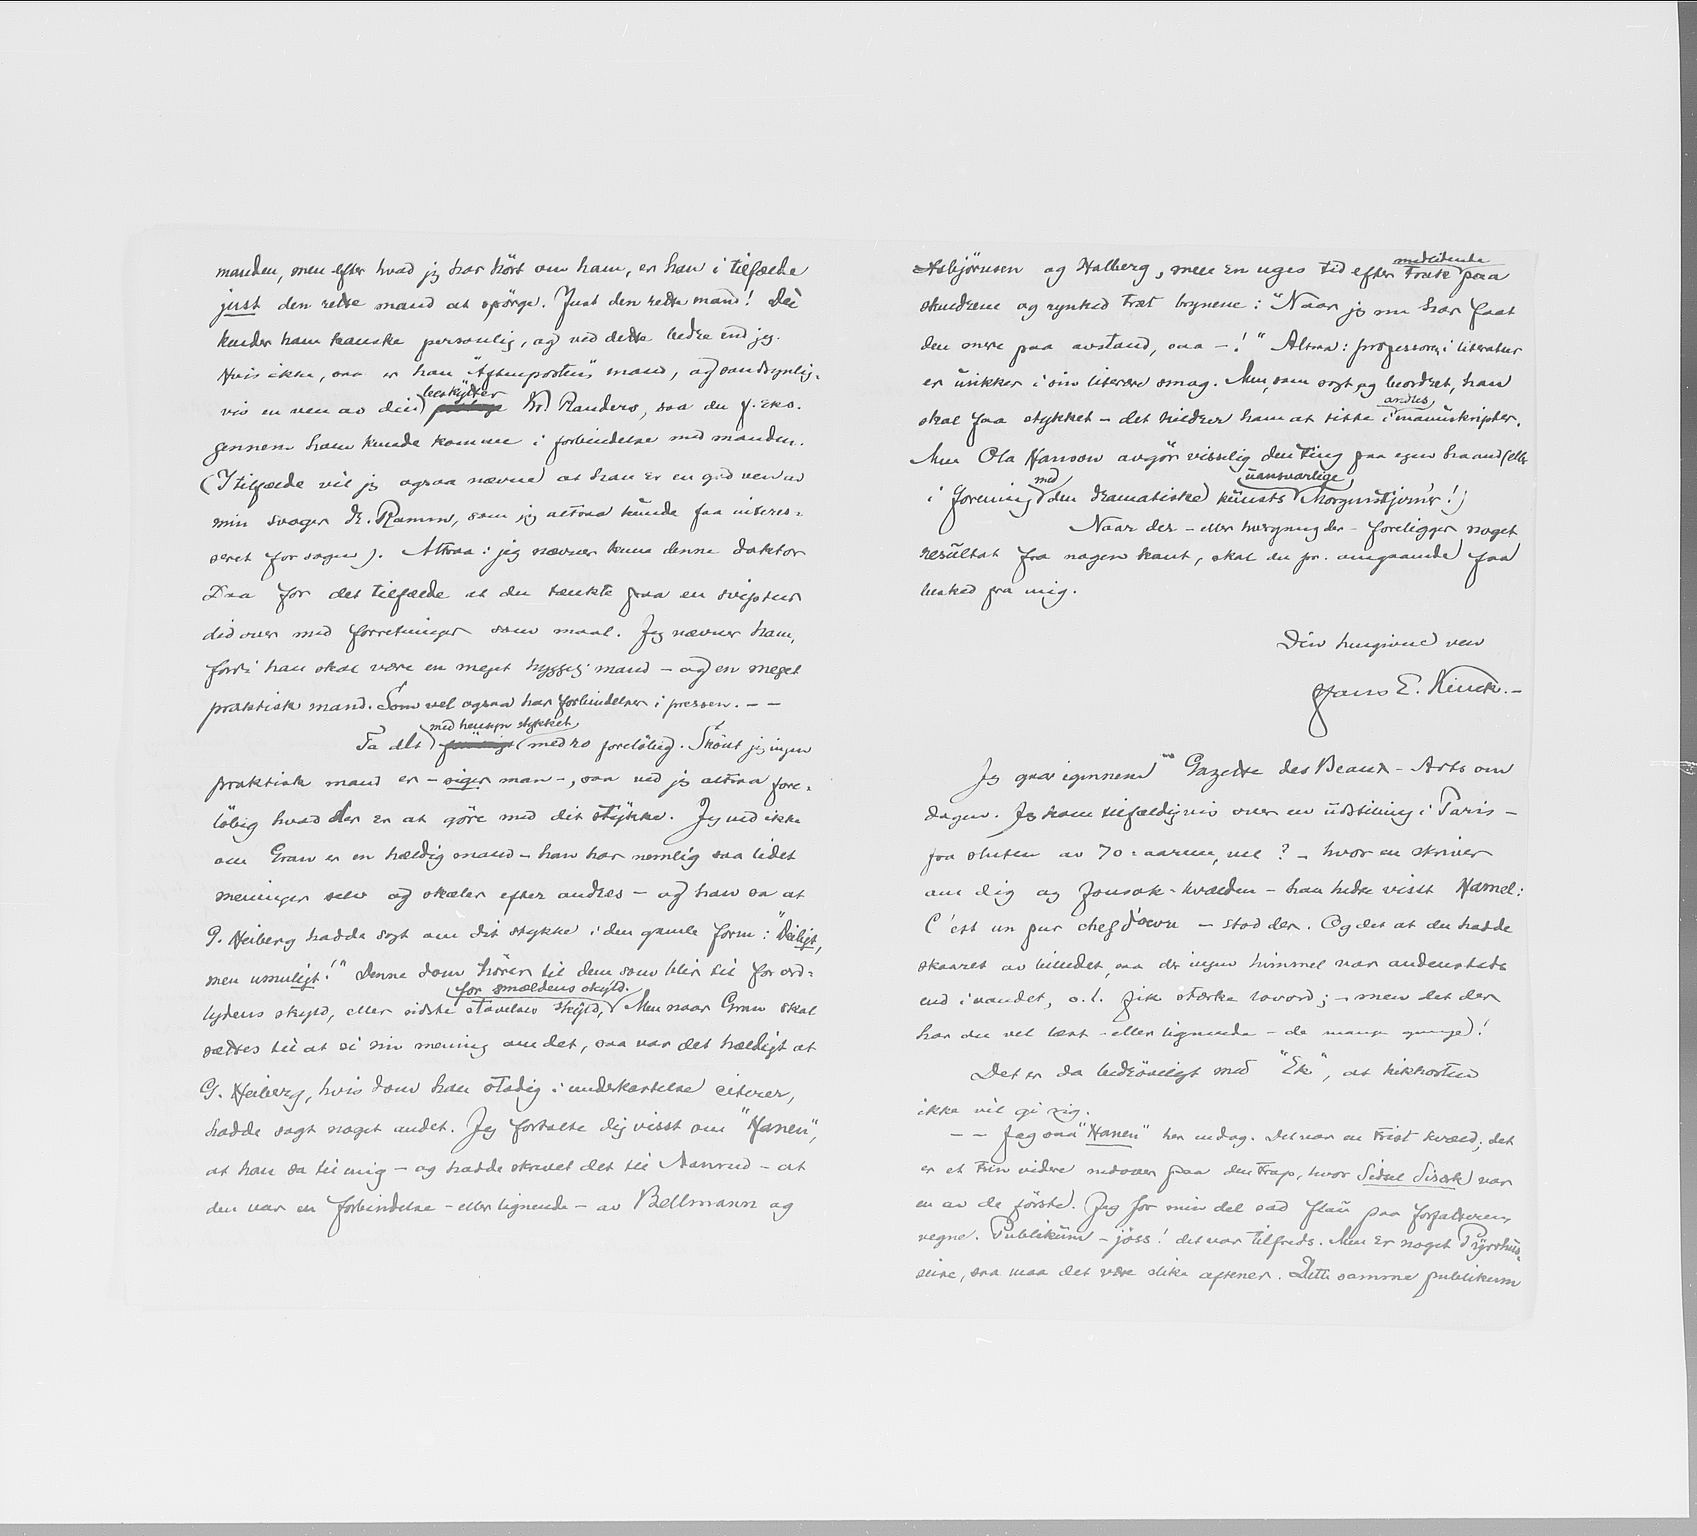 manden, men efter hvad jeg har hört om ham, er han i tilfælde
just den rette mand at spörge. Just den rette mand! Du
kjender ham kanske personlig, og ved dette bedre end jeg.
Hvis ikke, saa er han "Aftenposten"s mand, og sandsynlig-
vis en ven av din beskytter Kr. Randers, saa du f. eks.
gennem ham kunde komme i forbindelse med manden.
(I tilfælde vil jeg ogsaa nævne at han er en god ven av
min svoger dr. Ramm, som jeg altsaa kunde faa interes-
seret for sagen). Altsaa: jeg nævner kun denne doktor
Daa for det tilfælde at du tænkte paa en sviptur
did over med forretninger som maal. Jeg nævner ham,
fordi han skal være en meget hyggelig mand – og en meget
praktisk mand. Som vel ogsaa har forbindelser i pressen. – –
Ta det med hensyn stykket med ro foreløbig. Skönt jeg ingen
praktisk mand er – siger man –, saa ved jeg altsaa fore-
löbig hvad der er at göre med dit stykke. Jeg ved ikke
om Gran er en heldig mand – han har nemlig saa lidet
meninger selv og skæler efter andres – og han sa at
G. Heiberg hadde sagt om dit stykke i den gamle form: "Deiligt,
men umuligt!" Denne dom hörer til dem som blir til for ord-
lydens skyld, eller sidste stavelses skyld, for smældens skyld. Men naar Gran skal
sættes til at si sin mening om det, saa var det heldigt at
G. Heiberg, hvis dom han stadig i underkastelse citerer,
hadde sagt noget andet. Jeg fortalte dig visst om "Hanen",
at han sa til mig – og hadde skrevet det til Aanrud – at
den var en forbindelse – eller lignende – av Bellmann og
Asbjörnsen og Holberg, men en uges tid efter trak medlidende paa
skuldrene og rynked træt brynene: "Naar jeg nu har faat
den mere paa avstand, saa – !" Altsaa: professoren i literatur
er usikker i sin literære smag. Men, som sagt og beordret, han
skal faa stykket – det hindrer ham at titte i andres manuskripter.
Men Ola Hansson avgör visselig den ting paa egen haand (eller
i forening med den dramatiske kunsts uansvarlige Morgenstjerner!)
Naar der – eller hvergang der – foreligger noget
resultat fra nogen kant, skal du pr. omgaaende faa
besked fra mig.
Din hengivne ven
Hans E. Kinck. –
Jeg gaar igennem "Gazette des Beaux-Arts om
dagen. Jeg kom tilfældigvis over en udstilling i Paris –
fra slutten av 70-aarene, vel? – hvor en skriver
om dig og Jonsok-kvælden – han hedte visst Hamel:
C'est un pur chef d'œuvre – stod der. Og det at du hadde
skaaret av billedet, saa der ingen himmel var andensteds
end i vandet, o.l. fik stærke lovord; – men det der
har du vel læst – eller lignende – de mange gange)!
Det er da bedröveligt med "Ek", at kikhosten
ikke vil gi sig.
– – Jeg saa "Hanen" her en dag. Det var en trist kvæld; det
er et trin videre nedover paa den trap, hvor Sidsel Sidsærk var
en av de förste. Jeg for min del sad flau paa forfatterens
vegne. Publikum – jöss! det var tilfreds. Men er noget Pyrrhus-
seire, saa maa det være slike aftener. Dette samme publikum